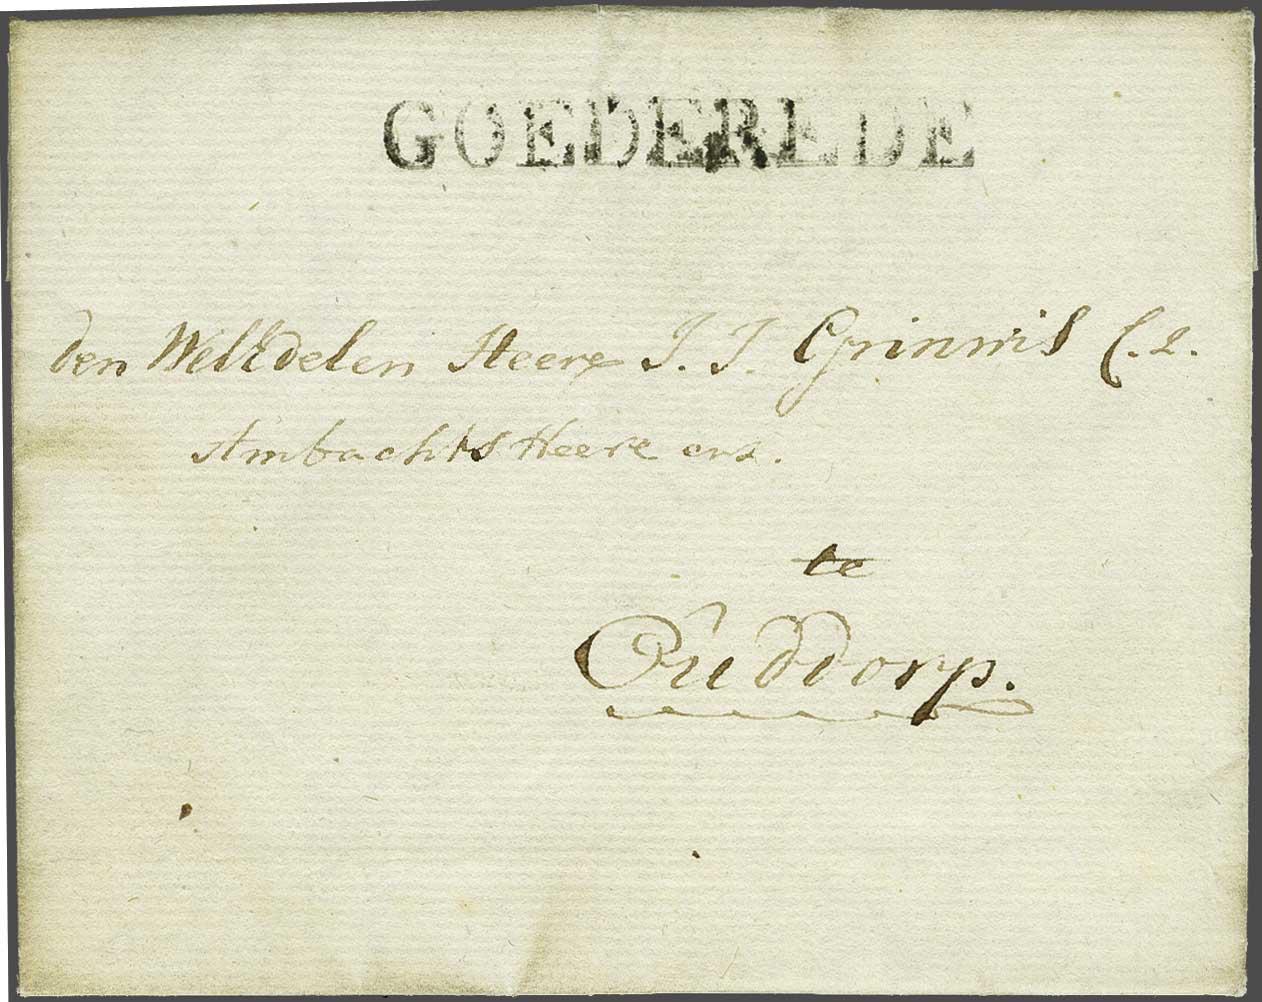 GOEDEREDE
den WelEdelen Heere J. J. Grinwis C. z.
AmbachtsHeere enz.
te
Ouddorp.